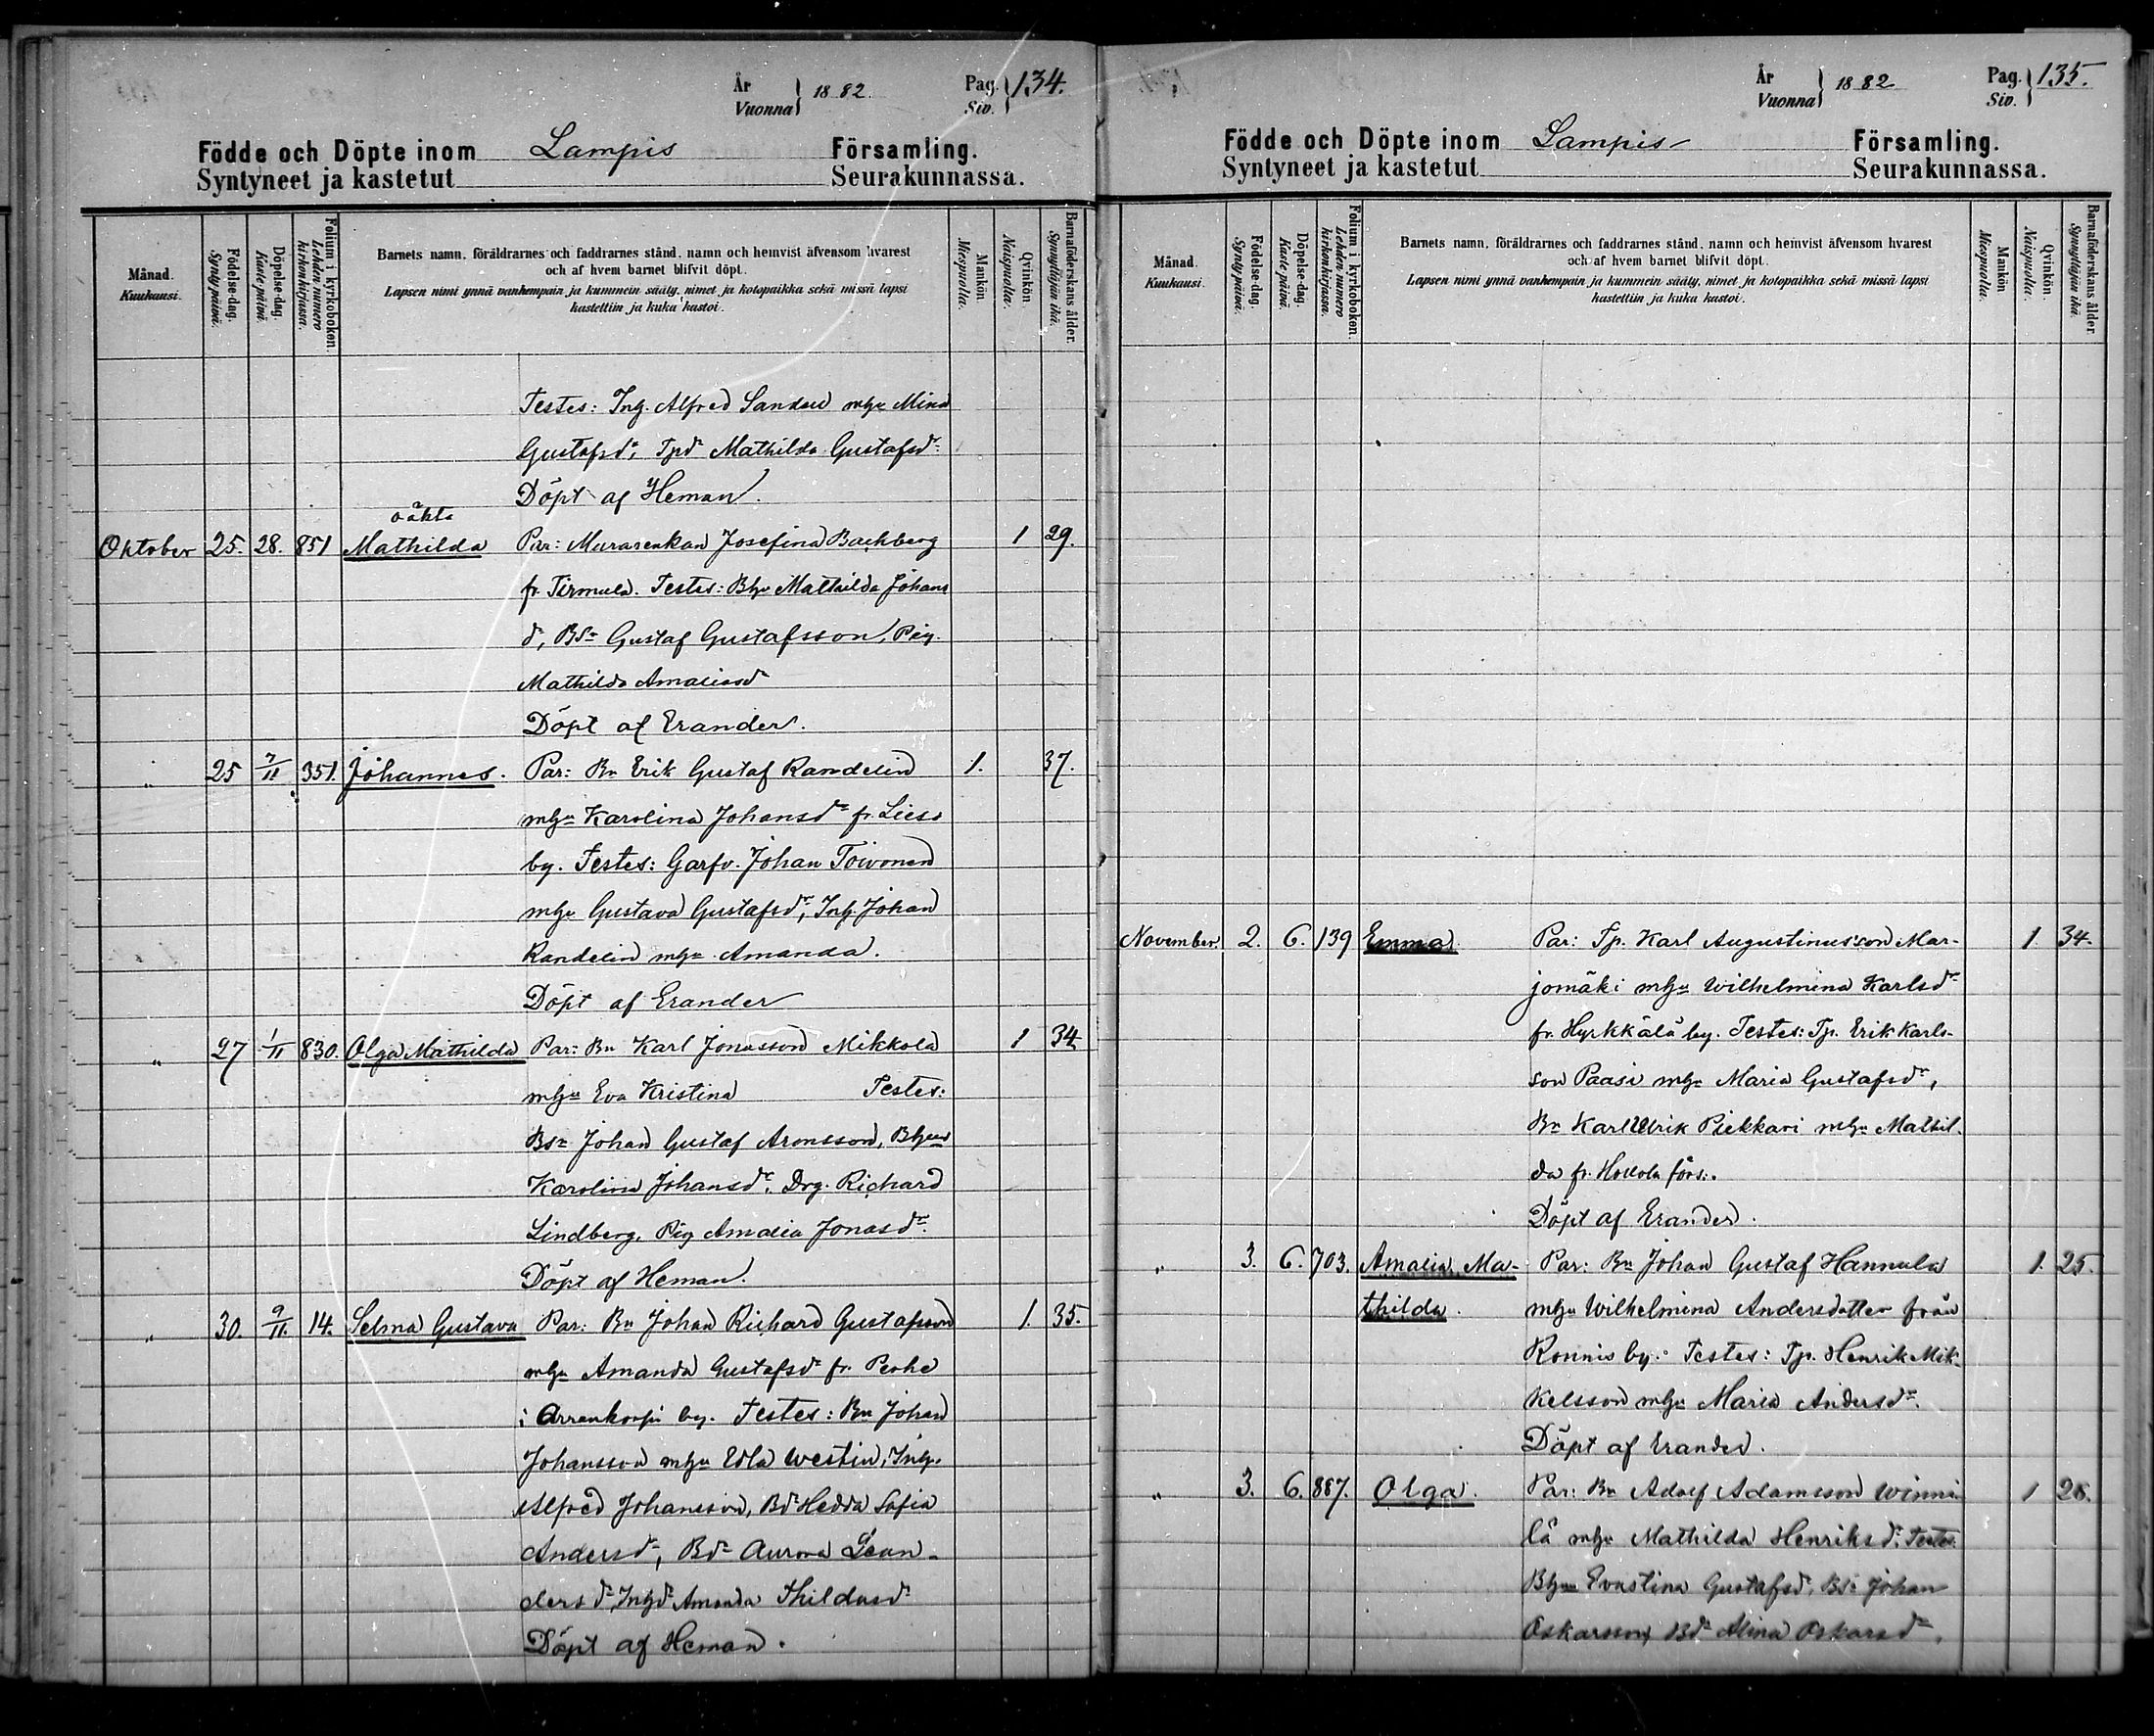 År
Vuonna } 1882
Pag.
Siv. } 134.
Födde och Döpte inom Lampis Församling.
Syntyneet ja kastetut Seurakunnassa.
Månad.
Kuukausi.
Födelse-dag.
Syntypäivä.
Döpelse-dag.
Kaste-päivä.
Folium i kyrkoboken.
Lehden numero
kirkonkirjassa.
Barnets namn, föräldrarnes och faddrarnes stånd, namn och hemvist äfvensom hvarest
och af hvem barnet blifvit döpt.
Lapsen nimi ynnä vanhempain ja kummein sääty, nimet ja kotopaikka sekä missä lapsi
kastettiin ja kuka kastoi.
Mankön.
Miespuolta.
Qvinkön.
Naispuolta.
Barnaföderskans ålder.
Synnyttäjän ikä.
Testes: Inh. Alfred Sandell mhu Mina
Gustafsdr, Tpdr Mathilda Gustafsdr
Döpt af Heman.
oäkta
Oktober 25. 28. 851 Mathilda Par: Murarenkan Josefina Backberg 1 29.
fr. Tirmula. Testes: Bhu Mathilda Johans
dr, Bsn Gustaf Gustafsson, Pig.
Mathilda Amaliasdr
Döpt af Erander.
" 25 7/11 351. Johannes. Par: Bn Erik Gustaf Randelin 1. 37.
mhu Karolina Johansdr fr. Lieso
by. Testes: Garfv. Johan Toivonen
mhu Gustava Gustafsdr, Inh. Johan
Randelin mhu Amanda.
Döpt af Erander
" 27 1/11 830. Olga Mathilda Par: Bn Karl Jonasson Mikkola 1 34
mhu Eva Kristina Testes:
Bsn Johan Gustaf Aronsson, Bhus
Karolina Johansdr, Drg. Richard
Lindberg, Pig Amalia Jonasdr.
Döpt af Heman.
" 30. 9/11. 14. Selma Gustava Par: Bn Johan Richard Gustafsson 1. 35.
mhu Amanda Gustafsdr fr. Perhe
i Arrankorpi by. Testes: Bn Johan
Johansson mhu Edla Westin, Inh.
Alfred Johansson, Bdr Hedda Sofia
Andersdr, Bdr Aurora Lean-
dersdr, Inhdr Amanda Thildasdr
Döpt af Heman.
År
Vuonna } 1882
Pag.
Siv. } 135.
Födde och Döpte inom Lampis Församling.
Syntyneet ja kastetut Seurakunnassa.
Månad.
Kuukausi.
Födelse-dag.
Syntypäivä.
Döpelse-dag.
Kaste-päivä.
Folium i kyrkoboken.
Lehden numero
kirkonkirjassa.
Barnets namn, föräldrarnes och faddrarnes stånd, namn och hemvist äfvensom hvarest
och af hvem barnet blifvit döpt.
Lapsen nimi ynnä vanhempain ja kummein sääty, nimet ja kotopaikka sekä missä lapsi
kastettiin ja kuka kastoi.
Mankön
Miespuolta.
Qvinkön.
Naispuolta.
Barnaföderskans ålder.
Synnyttäjän ikä.
November. 2. 6. 139 Emma. Par: Tp. Karl Augustinusson Mar- 1 34.
jomäki mhu Wilhelmina Karlsdr
fr. Hyrkkälä by. Testes: Tp. Erik Karls-
son Paasi mhu Maria Gustafsdr,
Bn Karl Ulrik Piekkari mhu Mathil-
da fr. Hollola förs:.
Döpt af Erander.
" 3. 6. 703. Amalia Ma- Par: Bn Johan Gustaf Hannula 1. 25.
thilda. mhu Wilhelmina Andersdotter från
Ronnis by. Testes: Tp. Henrik Mik-
kelsson mhu Maria Andersdr.
Döpt af Erander.
" 3. 6. 887. Olga. Par: Bn Adolf Adamsson Winni- 1
lä mhu Mathilda Henriksdr. Testes
Bhu Evastina Gustafsdr, Bsn Johan
Oskarsson, Bdr Alina Oskarsdr,